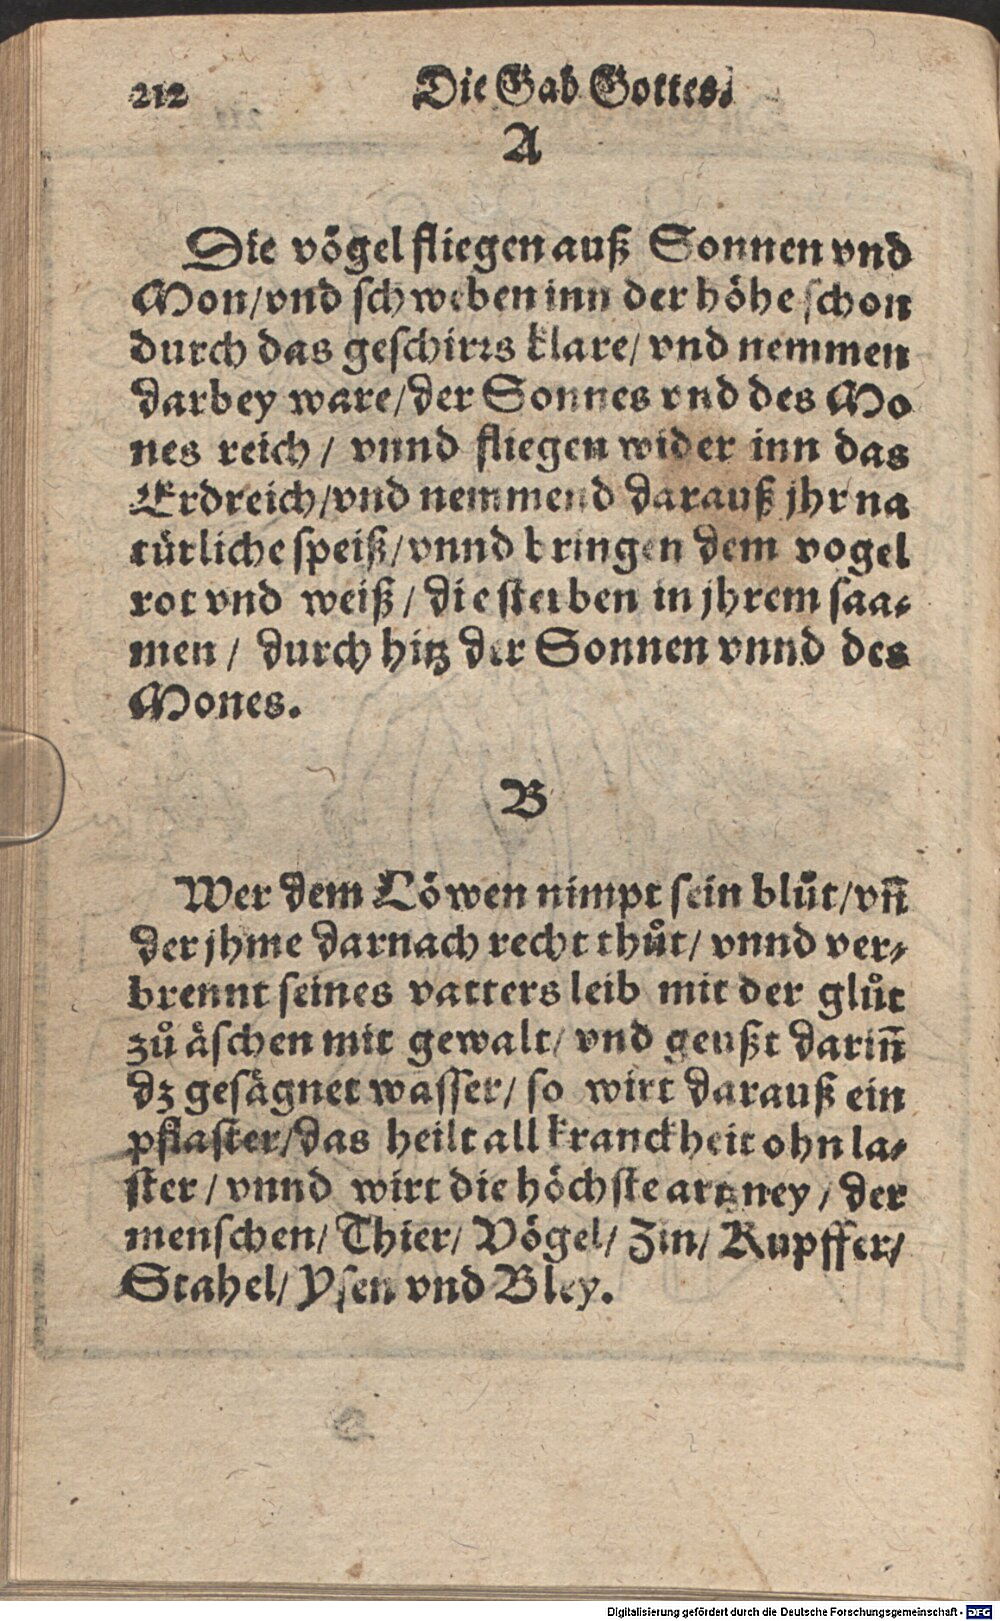 212 Die Gab Gottes.
A
Die vögel fliegen auß Sonnen vnd
Mon/vnd schweben inn der höhe schon
durch das geschirrs klare/ vnd nemmen
darbey ware/der Sonnes vnd des Mo
nes reich / vnnd fliegen wider inn das
Erdreich/vnd nemmend darauß jhr na
türliche speiß/vnnd bringen dem vogel
rot vnd weiß / die sterben in jhrem saa⸗
men / durch hitz der Sonnen vnnd des
Mones.
B
Wer dem Löwen nimpt sein blůt/vñ
der jhme darnach recht thůt/ vnnd ver⸗
brennt seines vatters leib mit der glůt
zů äschen mit gewalt/ vnd geußt dariñ
dz gesägnet wasser/ so wirt darauß ein
pflaster/das heilt all kranckheit ohn la⸗
ster / vnnd wirt die höchste artzney / der
menschen/ Thier/ Vögel/ Zin/ Kupffer/
Stahel/ Ysen vnd Bley.
Digitalisierung gefördert durch die Deutsche Forschungsgemeinschaft - DFG